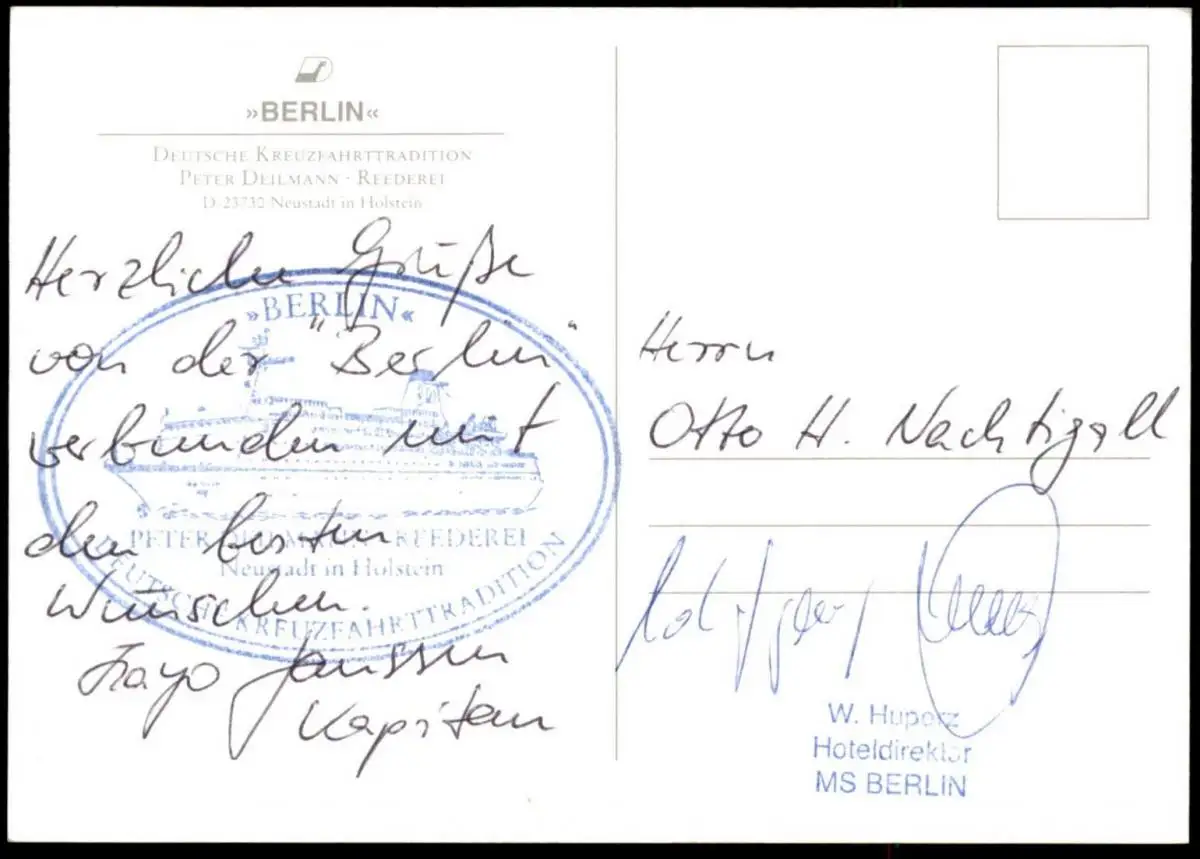 »BERLIN«
DEUTSCHE KREUZFAHRTTRADITION
PETER DEILMANN · REEDEREI
D-23730 Neustadt in Holstein
Herzliche Grüße
von der "Berlin"
verbunden mit
den besten
Wünschen.
Janssen
Kapitän
»BERLIN«
PETER DEILMANN · REEDEREI
Neustadt in Holstein
DEUTSCHE KREUZFAHRTTRADITION
Herrn
Otto H. Nachtigall
W. Huperz
Hoteldirektor
MS BERLIN